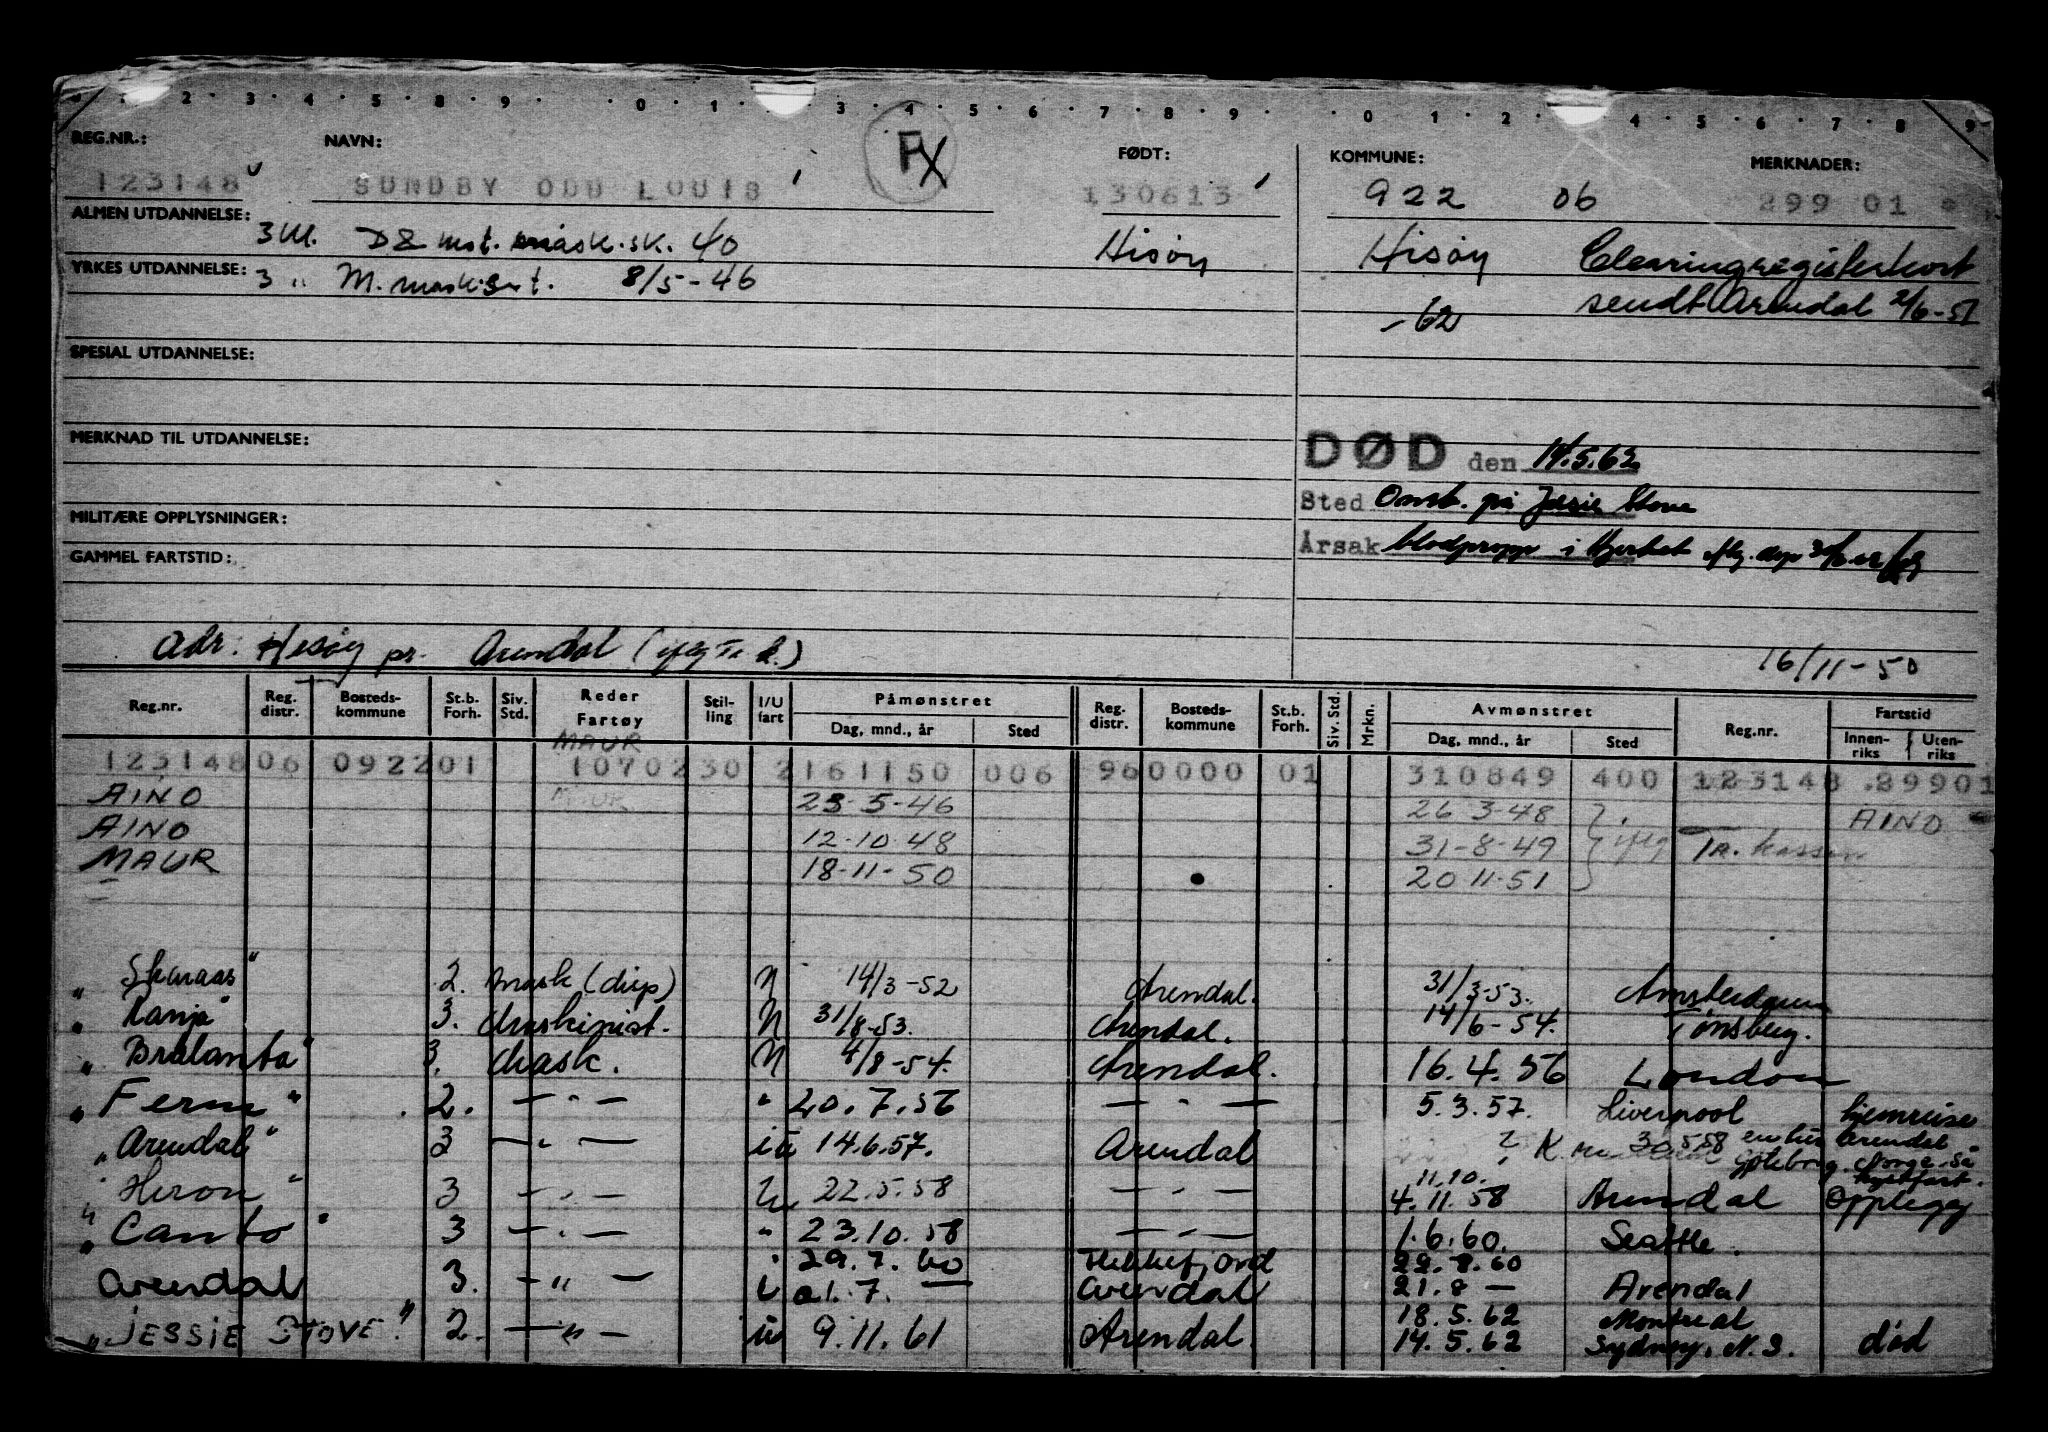 1 2 3 4 5 8 9 0 1 3 4 5 6 7 8 9 0 1 2 4 5 6 7 8 9
REG.NR.: NAVN: FØDT: KOMMUNE: MERKNADER:
123148 SUNDBY ODD LOUIS 130613 922 06 299 01
ALMEN UTDANNELSE: 3 40 Hisøy Hisøy Clearingregisterkort
YRKES UTDANNELSE: 3 " M. 8/5-46 sendt Arendal 2/6-51
-62
SPESIAL UTDANNELSE:
MERKNAD TIL UTDANNELSE:
DØD den 14.5.62
Sted Omb. på Jessie Stove
MILITÆRE OPPLYSNINGER:
Årsak blodpropp i hjertet
GAMMEL FARTSTID:
Adr: Hisøy pr. Arendal
16/11-50
Reg.nr. Reg. distr. Bosteds-kommune St.b. Forh. Siv. Std. Reder Fartøy Stil-ling I/U fart Påmønstret Dag, mnd., år Sted Reg. distr. Bosteds-kommune St.b. Forh. Siv. Std. Mrkn. Avmønstret Dag, mnd., år Sted Reg.nr. Fartstid Innen-riks Uten-riks
MAUR
123148 06 0922 01 10702 30 2 161150 006 96 0000 01 310849 400 123148 29901
AINO 23-5-46 26 3-48 AINO
AINO 12-10-48 31-8-49
MAUR 18-11-50 20 11-51
" 2. mask N 14/3-52 Arendal. 31/3-53. Amsterdam
" Ranja" 3. Maskinist. N 31/8-53. Arendal. 14/6-54. Tønsberg.
" Bralanta" 3. Mask. N 4/8-54. Arendal. 16.4.56 London
" Ferm" 2. — " — " 20.7.56 — " — 5.3.57. Liverpool hjemreise
" Arendal" 3 — " — 14.6.57. Arendal 30.5.58 Arendal Gøteborg
" Heron" 3 — " — 22.5.58 — " — 11.10. 4.11.58 Arendal Opplegg
" Canto" 3 — " — " 23.10.58 — " — 1.6.60. Seattle.
" 29.7.60 22.8.60
Arendal 3. — " — 7. — Arendal 21.8 — Arendal
18.5.62 Montreal
" JESSIE STOVE" 2. — " — 9.11.61 Arendal. 14.5.62 Sydney, N.S. død